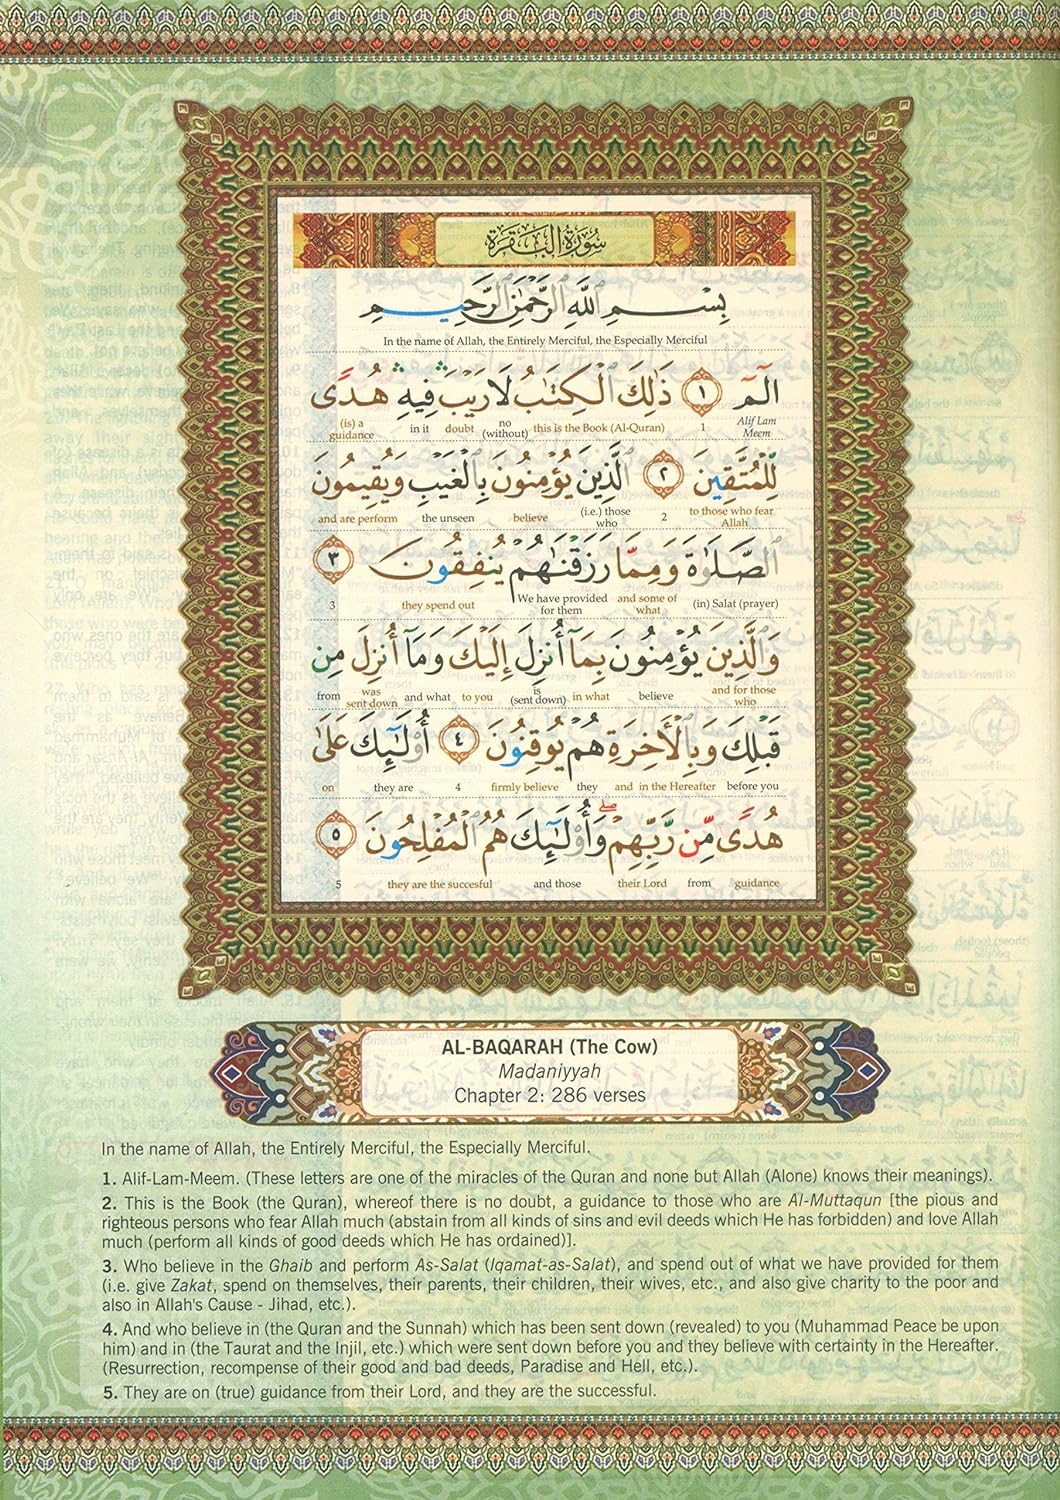 سُورَةُ الْبَقَرَةِ
بِسْمِ ٱللَّهِ ٱلرَّحْمَٰنِ ٱلرَّحِيمِ
In the name of Allah, the Entirely Merciful, the Especially Merciful
الٓمٓ ١ ذَٰلِكَ ٱلْكِتَٰبُ لَا رَيْبَ فِيهِ هُدًى
Alif Lam Meem 1 this is the Book (Al-Quran) no (without) doubt in it (is) a guidance
لِّلْمُتَّقِينَ ٢ ٱلَّذِينَ يُؤْمِنُونَ بِٱلْغَيْبِ وَيُقِيمُونَ
to those who fear Allah 2 (i.e.) those who believe the unseen and are perform
ٱلصَّلَوٰةَ وَمِمَّا رَزَقْنَٰهُمْ يُنفِقُونَ ٣
(in) Salat (prayer) and some of what We have provided for them they spend out 3
وَٱلَّذِينَ يُؤْمِنُونَ بِمَآ أُنزِلَ إِلَيْكَ وَمَآ أُنزِلَ مِن
and for those who believe in what is (sent down) to you and what was sent down from
قَبْلِكَ وَبِٱلْأَخِرَةِ هُمْ يُوقِنُونَ ٤ أُو۟لَٰٓئِكَ عَلَىٰ
before you and in the Hereafter they firmly believe 4 they are on
هُدًى مِّن رَّبِّهِمْ ۖ وَأُو۟لَٰٓئِكَ هُمُ ٱلْمُفْلِحُونَ ٥
guidance from their Lord and those they are the succesful 5
AL-BAQARAH (The Cow)
Madaniyyah
Chapter 2: 286 verses
In the name of Allah, the Entirely Merciful, the Especially Merciful.
1. Alif-Lam-Meem. (These letters are one of the miracles of the Quran and none but Allah (Alone) knows their meanings).
2. This is the Book (the Quran), whereof there is no doubt, a guidance to those who are Al-Muttaqun [the pious and
righteous persons who fear Allah much (abstain from all kinds of sins and evil deeds which He has forbidden) and love Allah
much (perform all kinds of good deeds which He has ordained)].
3. Who believe in the Ghaib and perform As-Salat (Iqamat-as-Salat), and spend out of what we have provided for them
(i.e. give Zakat, spend on themselves, their parents, their children, their wives, etc., and also give charity to the poor and
also in Allah's Cause - Jihad, etc.).
4. And who believe in (the Quran and the Sunnah) which has been sent down (revealed) to you (Muhammad Peace be upon
him) and in (the Taurat and the Injil, etc.) which were sent down before you and they believe with certainty in the Hereafter.
(Resurrection, recompense of their good and bad deeds, Paradise and Hell, etc.).
5. They are on (true) guidance from their Lord, and they are the successful.